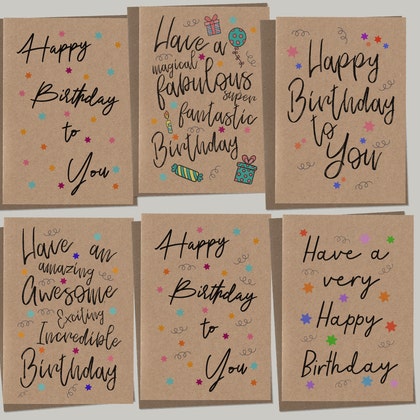 Happy
Birthday
to
You
Have a
magical
fabulous
super
fantastic
Birthday
Happy
Birthday
to
You
Have an
amazing
Awesome
Exciting
Incredible
Birthday
Happy
Birthday
to
You
Have a
very
Happy
Birthday